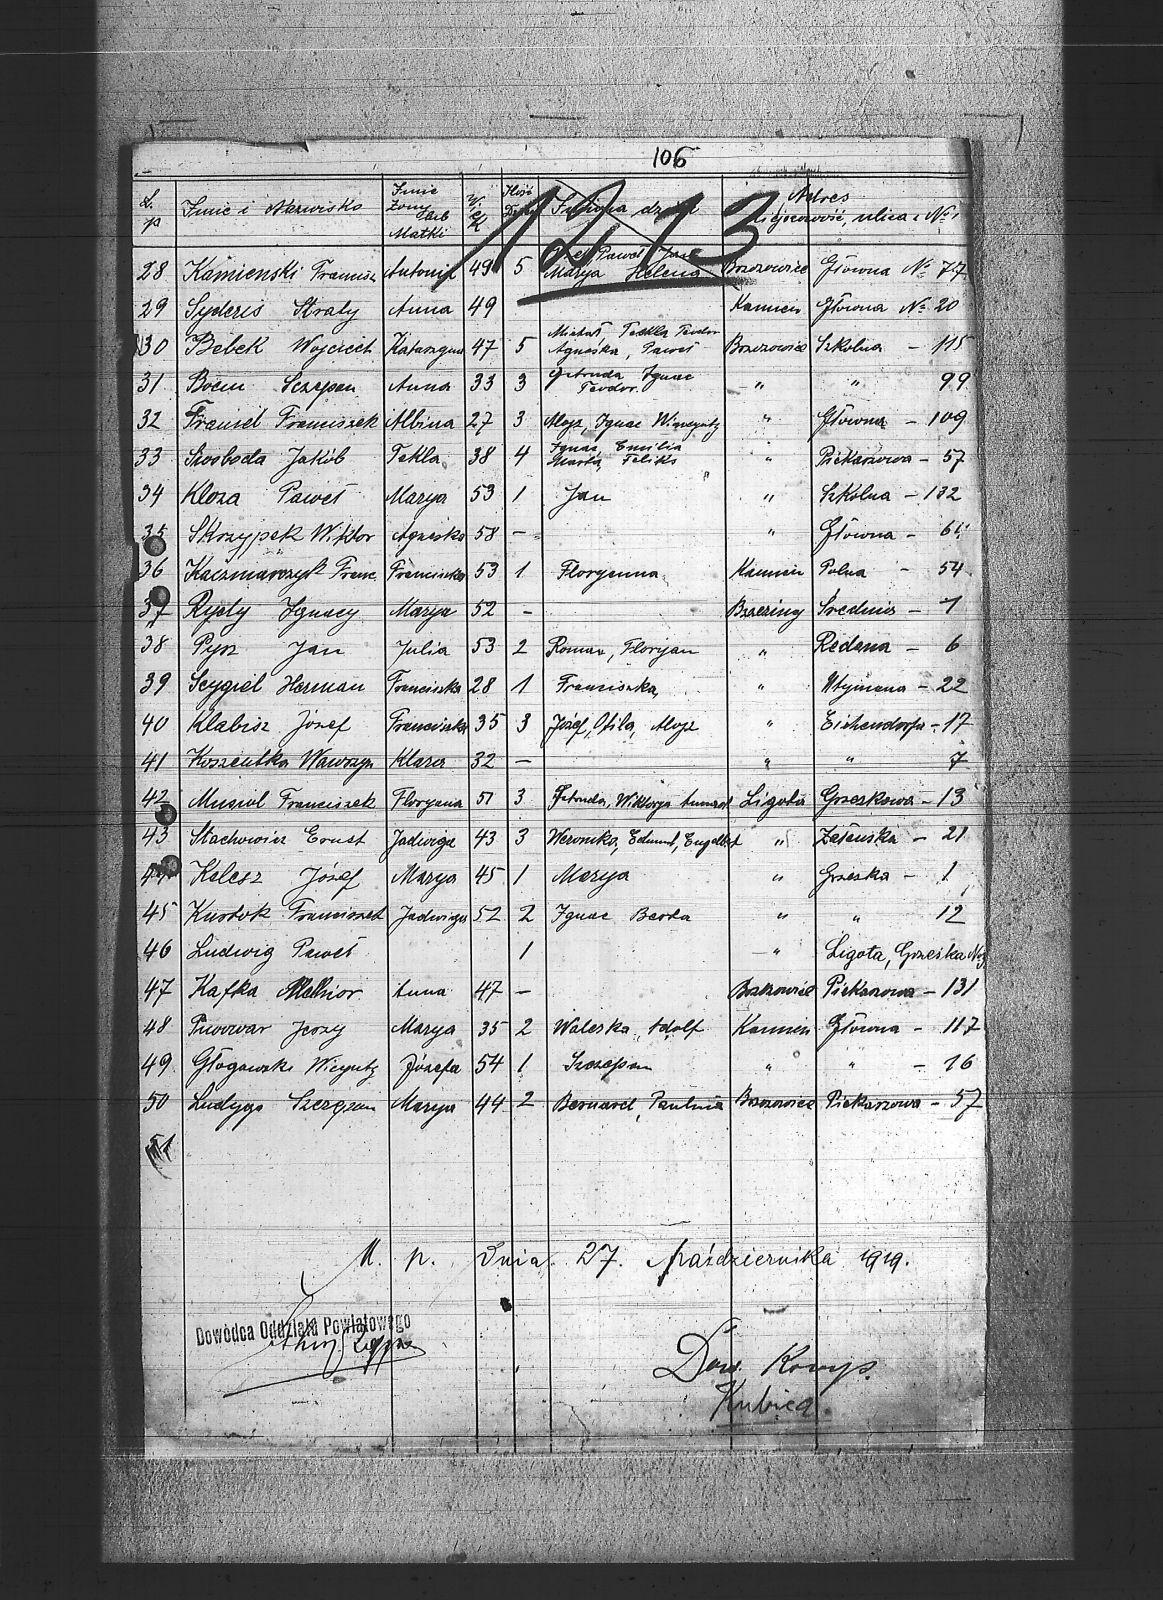 106
1213
L. p Imie i Nazwisko Imie żony lub Matki Wiek Ilość Imiona dzieci Adres Miejscowość, ulica i No
28 Kamienski Francisz Antonia 49 5 Paweł Marya Helena Brzozowice Główna No 77
29 Syderis Anna 49 Kamien Główna No 20
30 Bebek Wojciech Katarzyna 47 5 Michał Tekla Teodor Agneska, Paweł Brzozowice Szkolna - 115
31 Sczepan Anna 33 3 Getruda Ignac Teodor " " 99
32 Franciszek Albina 27 3 Alojz, Ignac " Główna - 109
33 Swoboda Jakób Tekla 38 4 Ignac, Emilia Marta, Feliks " Piekarzowa - 57
34 Kloza Paweł Marya 53 1 Jan " Szkolna - 132
35 Skrzypek Wiktor Agneska 58 - " Główna -
36 Kaczmarczyk Franc. Franciszka 53 1 Floryanna Kamien Polna - 54
37 Rycly Ignacy Marya 52 - Brzeziny Srednia - 1
38 Pysz Jan Julia 53 2 Roman, Floryan " Redena - 6
39 Scygiel Herman Franciszka 28 1 Franciszka, " - 22
40 Klabisz Józef Franciszka 35 3 Józef, Otila, Alojz " Eichendorfa - 17
41 Koszentka Wawrzyn Klara 32 - " " 7
42 Musiol Franciszek Floryana 51 3 Getruda, Wiktorya Ligota Grzeskowa - 13
43 Stachowicz Ernst Jadwiga 43 3 Weronika, Edmund, Engelbert " - 21
44 Kalesz Józef Marya 45 1 Marya " Grzeska - 1
45 Kustok Franciszek Jadwiga 52 2 Ignac Berta " " 12
46 Ludwig Paweł 1 - " Ligota, Grzeska
47 Kafka Melhior Anna 47 - Brzozowice Piekarzowa - 131
48 Piwowar Jerzy Marya 35 2 Waleska, Adolf Kamien Główna - 117
49 Głogowski Józefa 54 1 Szczepan " " - 16
50 Ludyga Szczepan Marya 44 2 Bernard, Paulina Brzozowice Piekarzowa - 57
51
M. p. Dnia 27. Października 1919.
Dowódca Oddziału Powiatowego
Dow. Komp.
Kubica.